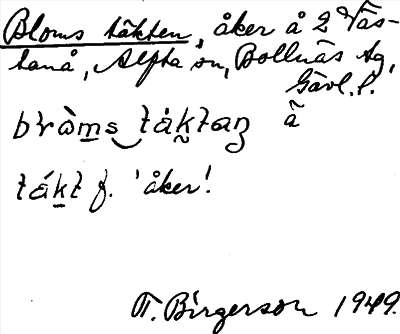 Bloms täkten, åker å 2 Väs-
tanå, Alfta sn, Bollnäs tg,
Gävl. l.
bràms tàktan å
täkt f. 'åker'.
T. Birgerson 1949.